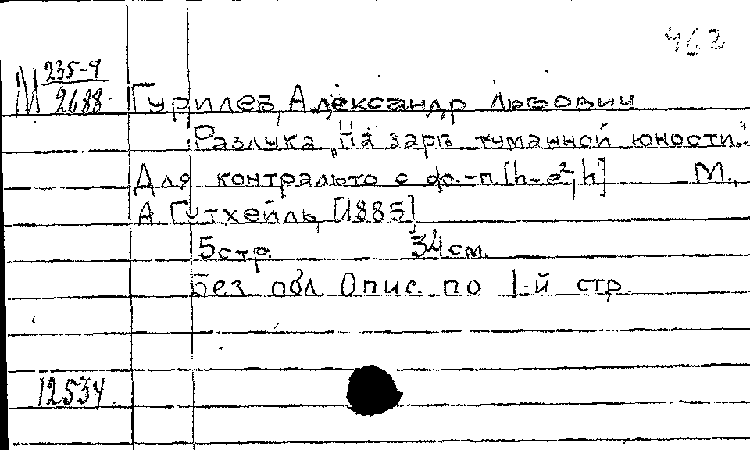 462
М 235-9
2688
Гурилев, Александр Львович
Разлука „На заре туманной юности."
Для контральто с ф.-п. [h-e², h] М.,
А. Гутхейль, [1885]
5 стр. 34 см.
Без обл. Опис. по 1-й стр.
12534.